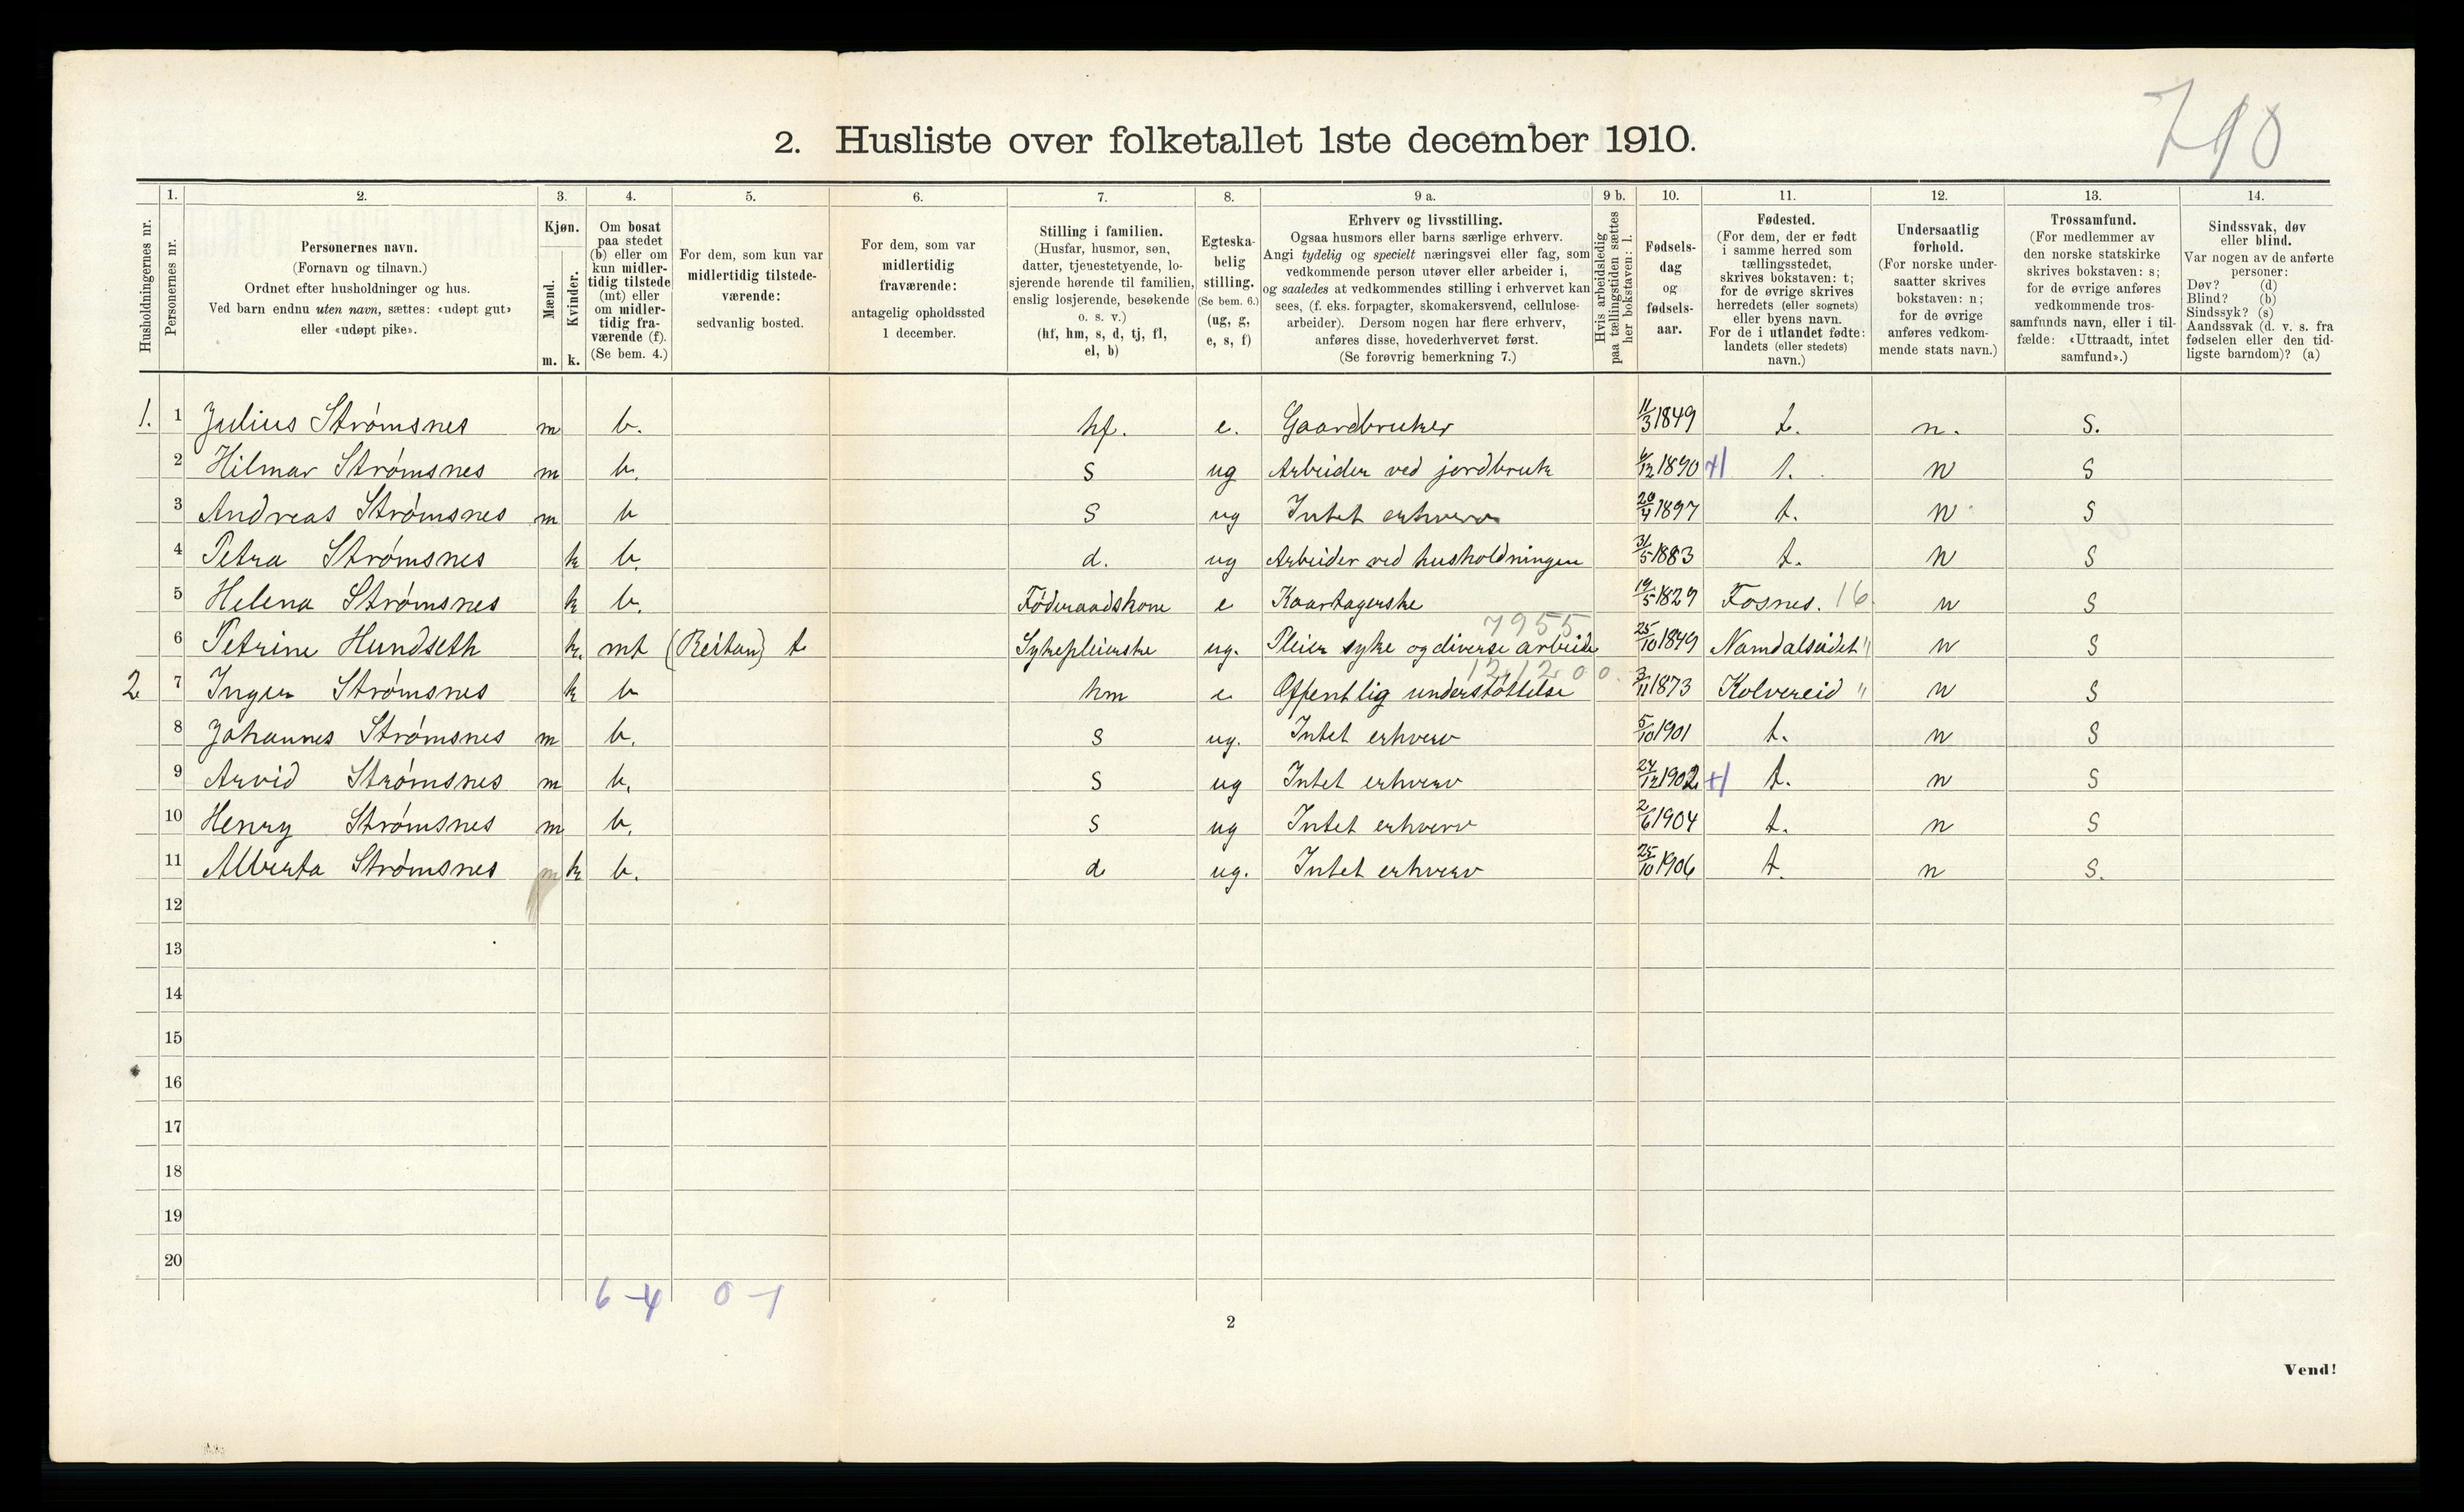 710
2. Husliste over folketallet 1ste december 1910.
Husholdningernes nr.
1. Personernes nr.
2. Personernes navn. (Fornavn og tilnavn.) Ordnet efter husholdninger og hus. Ved barn endnu uten navn, sættes: «udøpt gut» eller «udøpt pike».
3. Kjøn. Mænd. m. Kvinder. k.
4. Om bosat paa stedet (b) eller om kun midlertidig tilstede (mt) eller om midlertidig fraværende (f). (Se bem. 4.)
5. For dem, som kun var midlertidig tilstedeværende: sedvanlig bosted.
6. For dem, som var midlertidig fraværende: antagelig opholdssted 1 december.
7. Stilling i familien. (Husfar, husmor, søn, datter, tjenestetyende, losjerende hørende til familien, enslig losjerende, besøkende o. s. v.) (hf, hm, s, d, tj, fl, el, b)
8. Egteskabelig stilling. (Se bem. 6.) (ug, g, e, s, f)
9 a. Erhverv og livsstilling. Ogsaa husmors eller barns særlige erhverv. Angi tydelig og specielt næringsvei eller fag, som vedkommende person utøver eller arbeider i, og saaledes at vedkommendes stilling i erhvervet kan sees, (f. eks. forpagter, skomakersvend, cellulosearbeider). Dersom nogen har flere erhverv, anføres disse, hovederhvervet først. (Se forøvrig bemerkning 7.)
9 b. Hvis arbeidsledig paa tællingstiden sættes her bokstaven: l.
10. Fødselsdag og fødselsaar.
11. Fødested. (For dem, der er født i samme herred som tællingsstedet, skrives bokstaven: t; for de øvrige skrives herredets (eller sognets) eller byens navn. For de i utlandet fødte: landets (eller stedets) navn.)
12. Undersaatlig forhold. (For norske undersaatter skrives bokstaven: n; for de øvrige anføres vedkommende stats navn.)
13. Trossamfund. (For medlemmer av den norske statskirke skrives bokstaven: s; for de øvrige anføres vedkommende trossamfunds navn, eller i tilfælde: «Uttraadt, intet samfund».)
14. Sindssvak, døv eller blind. Var nogen av de anførte personer: Døv? (d) Blind? (b) Sindssyk? (s) Aandssvak (d. v. s. fra fødselen eller den tidligste barndom)? (a)
1. 1 Julius Strømsnes m b. hf. e. Gaardbruker 11/3 1849 t. n. s.
2 Hilmar Strømsnes m b. s ug Arbeider ved jordbruk 6/12 1890 t. n s
3 Andreas Strømsnes m b s ug Intet erhverv 20/4 1897 t. n s
4 Petra Strømsnes k b. d. ug Arbeider ved husholdningen 31/5 1883 t. n s
5 Helena Strømsnes k b. Føderaadskone e Kaartagerske 19/5 1829 Fosnes. 16 n s
7955
6 Petrine Hundseth k. mt (Reitan) t Sykepleierske ug. Pleier syke og diverse arbeide 25/10 1849 Namdalseidet " n s
12,12,00.
2 7 Inger Strømsnes k b hm e Offentlig understøttelse 3/11 1873 Kolvereid " n s
8 Johannes Strømsnes m b. s ug. Intet erhverv 5/10 1901 t. n s
9 Arvid Strømsnes m b. s ug Intet erhverv 24/12 1902 t. n s
10 Henry Strømsnes m b. s ug Intet erhverv 2/6 1904 t. n s
11 Alberta Strømsnes k b. d ug. Intet erhverv 25/10 1906 t. n s.
12
13
14
15
16
17
18
19
20
6-4 0-1
2
Vend!